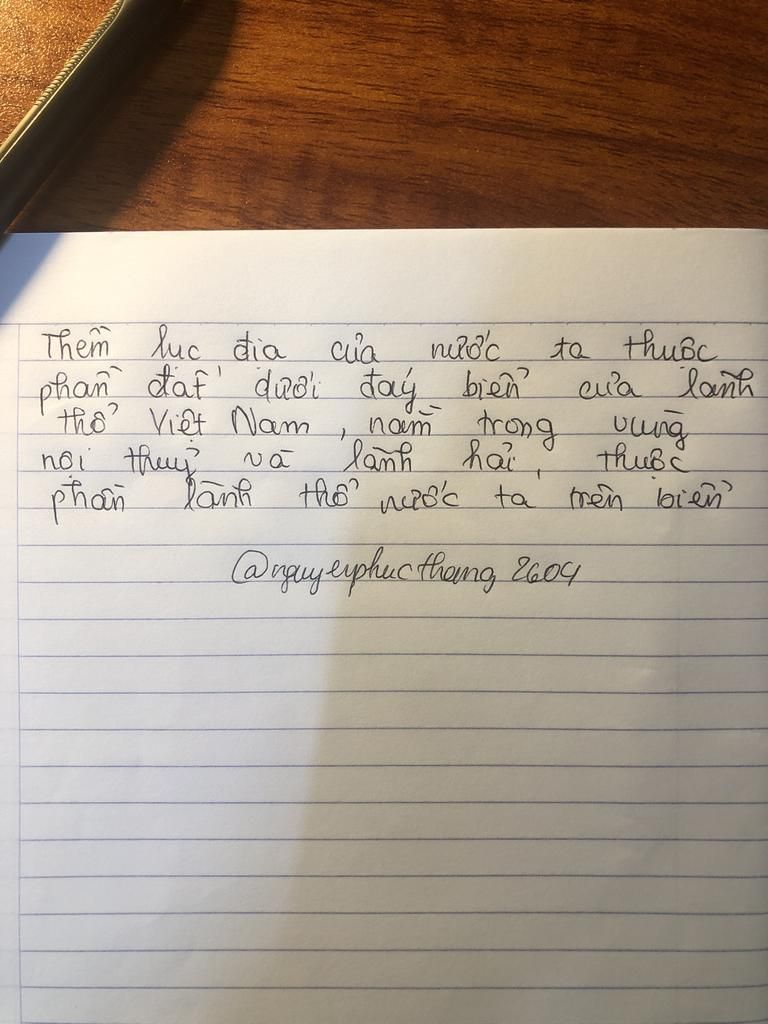 Thềm lục địa của nước ta thuộc
phần đất dưới đáy biển của lãnh
thổ Việt Nam, nằm trong vùng
nội thuỷ và lãnh hải, thuộc
phần lãnh thổ nước ta trên biển
@nguyenphucthang2604